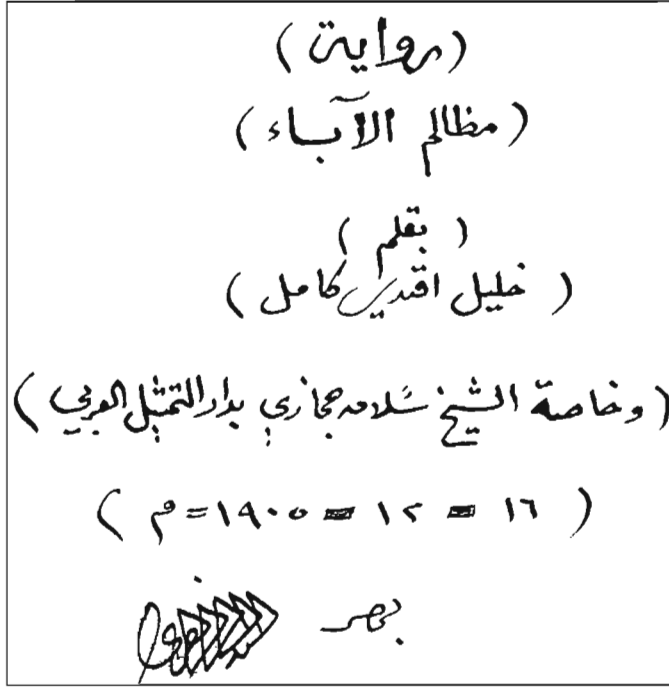 (رواية)
(مظالم الآباء)
(بقلم)
(خليل افندي كامل)
(وخاصة الشيخ سلامه حجازي بدار التمثيل العربي)
(١٦ = ١٢ = ١٩٠٥ = م)